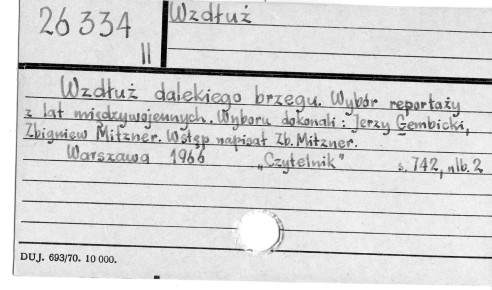 26334
II
Wzdłuż
Wzdłuż dalekiego brzegu. Wybór reportaży
z lat międzywojennych. Wyboru dokonali: Jerzy Gembicki,
Zbigniew Mitzner. Wstęp napisał Zb. Mitzner.
Warszawa 1966 „Czytelnik" s. 742, nlb. 2
DUJ. 693/70. 10 000.